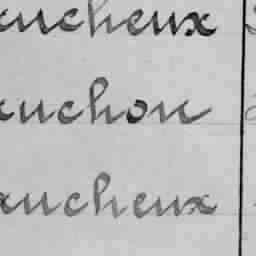 aucheux
auchon
aucheux